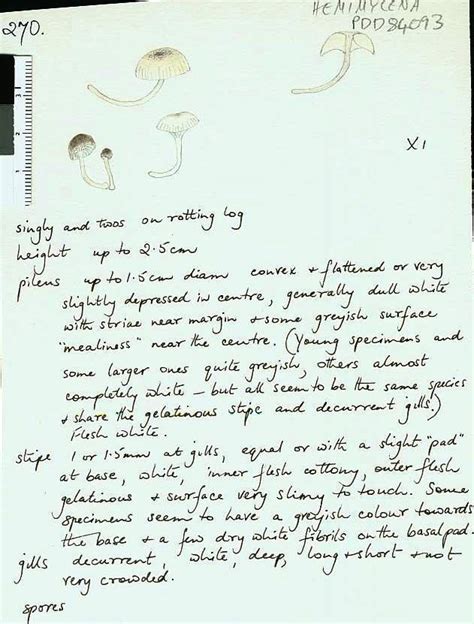 HEMIMYCENA
270.
PDD84093
X1
singly and twos on rotting log
height up to 2.5cm
pileus up to 1.5cm diam convex + flattened or very
slightly depressed in centre, generally dull white
with striae near margin + some greyish surface
"mealiness" near the centre. (Young specimens and
some larger ones quite greyish, others almost
completely white – but all seem to be the same species
+ share the gelatinous stipe and decurrent gills.)
Flesh white.
stipe 1 or 1.5mm at gills, equal or with a slight "pad"
at base, white, inner flesh cottony, outer flesh
gelatinous + surface very slimy to touch. Some
specimens seem to have a greyish colour towards
the base + a few dry white fibrils on the basal pad.
gills decurrent, white, deep, long + short + not
very crowded.
spores